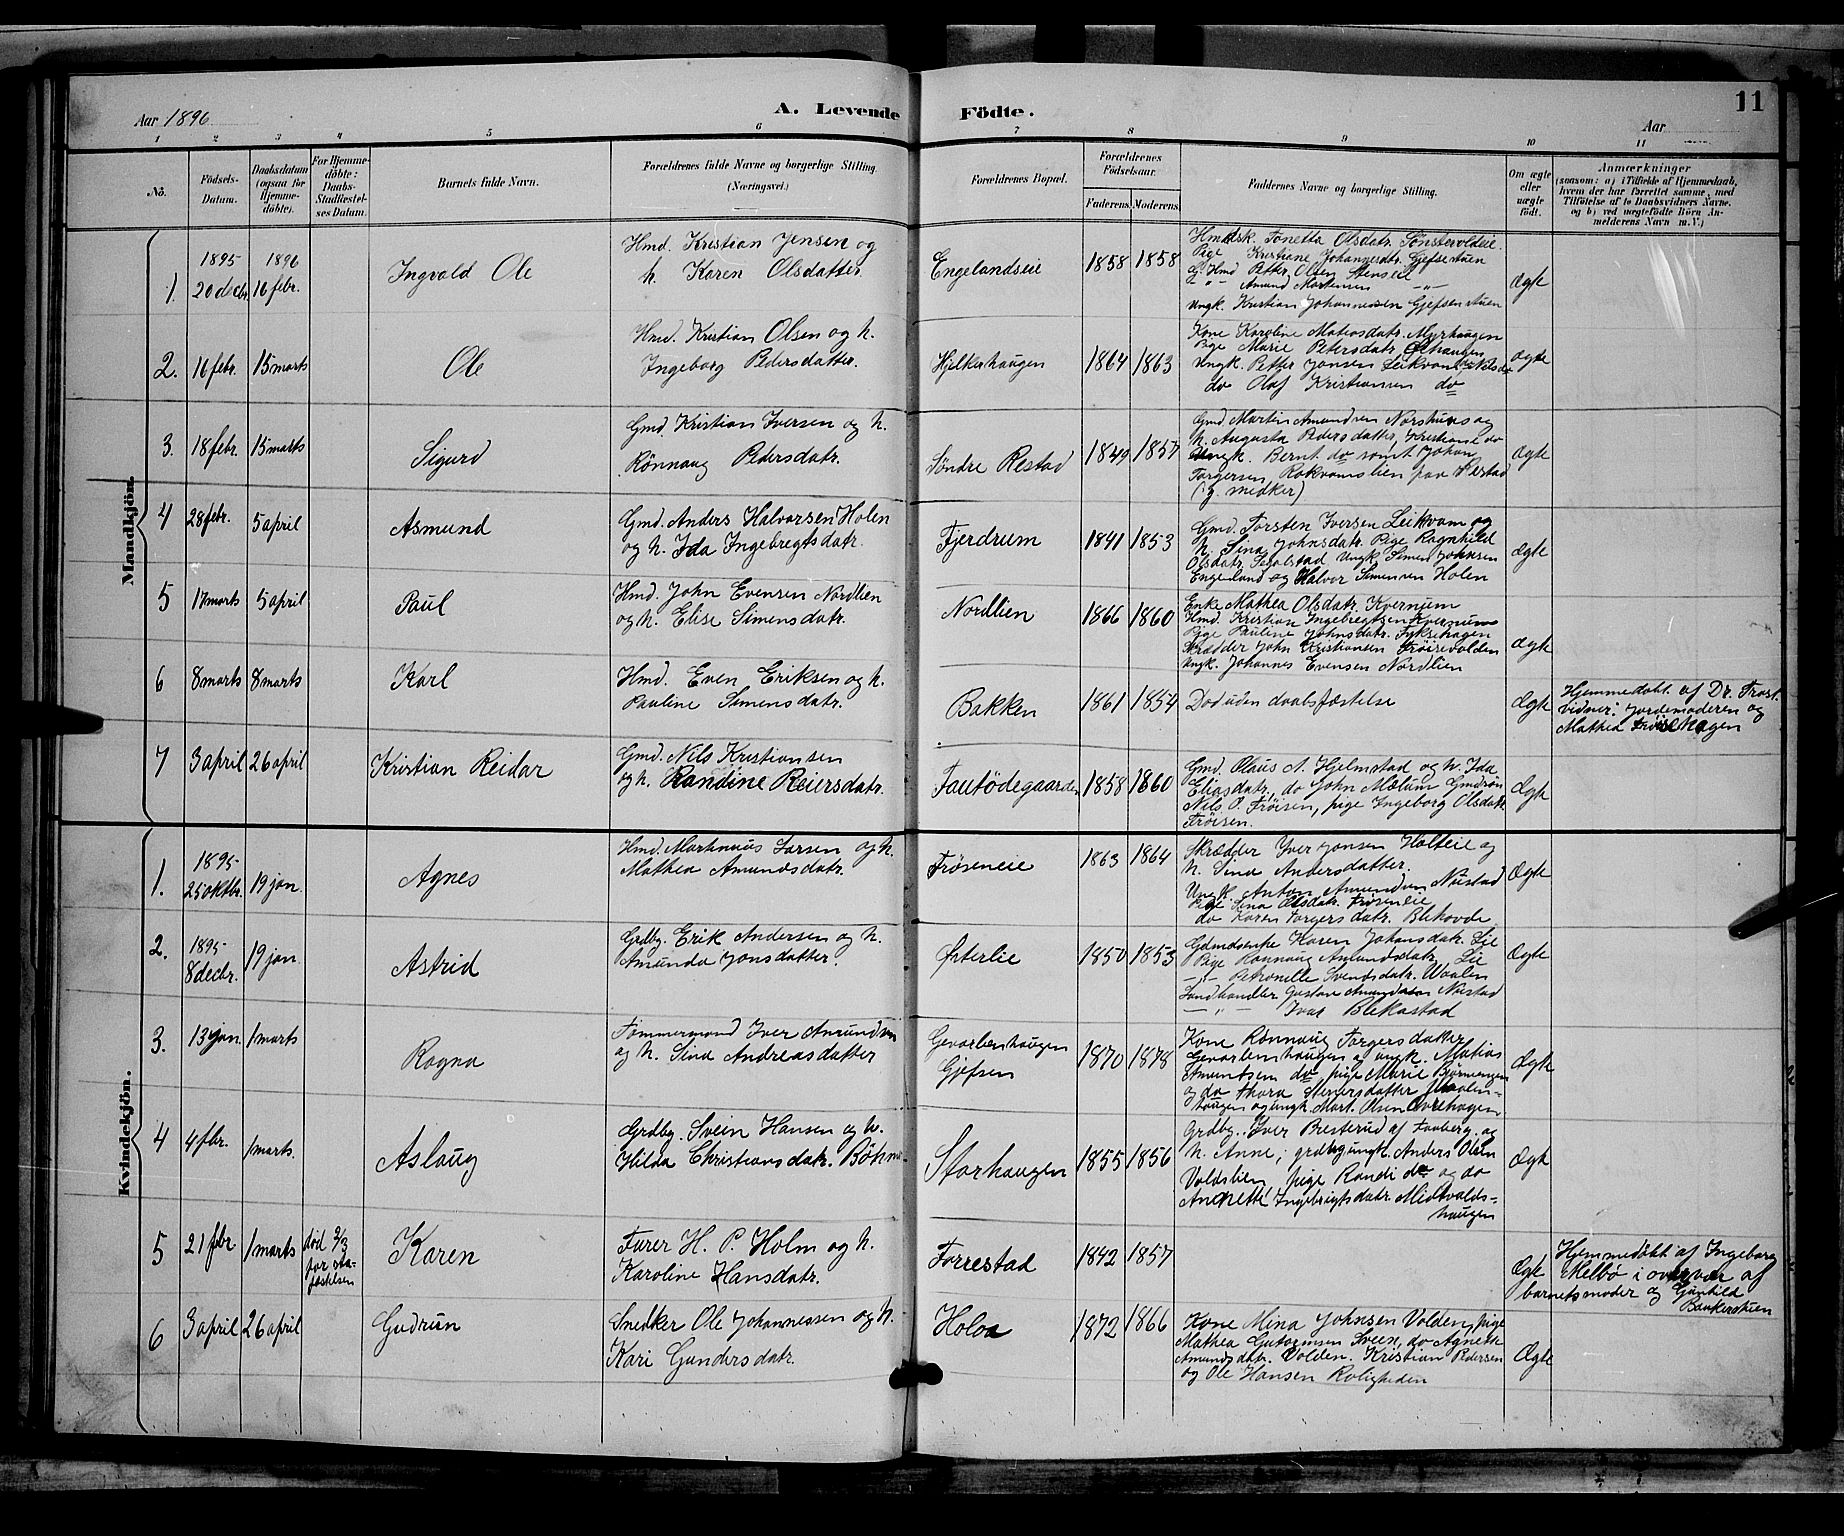 Aar 1896
A. Levende Födte.
Aar
11
1 2 3 4 5 6 7 8 9 10 11
No.
Födsels-Datum.
Daabsdatum (ogsaa for Hjemmedöbte).
For Hjemmedöbte: Daabs-Stadfæstelses Datum.
Barnets fulde Navn.
Forældrenes fulde Navne og borgerlige Stilling. (Næringsvei.)
Forældrenes Bopæl.
Forældrenes Födselsaar.
Faderens. Moderens.
Faddernes Navne og borgerlige Stilling.
Om ægte eller uægte födt.
Anmærkninger
(saasom: a) i Tilfælde af Hjemmedaab, hvem der har forrettet samme, med Tilföielse af to Daabsvidners Navne. og b) ved uægtefödte Börn Anmelderens Navn m. V.)
Mandkjön.
1. 1895 20 decbr. 1896 16 febr. Ingvald Ole
Hmd. Kristian Jensen og
h. Karen Olsdatter
Engelandseie 1858 1858
Hmdsk. Tonetta Olsdatr. Sönstevoldeie.
Pige Kristiane Johannesdtr. Gjefsestuen
G. Hmd Petter Olsen Stenseie
Amund Mortensen
Ungk. Kristian Johannessen Gjefsenstuen
Ægte
2. 16 febr. 15 marts Ole
Hmd. Kristian Olsen og h.
Ingeborg Pedersdatter.
Hjelkerhaugen 1864 1863
Kone Karoline Matiasdatr. Myrhaugen
Pige Marie Petersdatr.
Ungk. Petter Jonsen Leikvam
do Olaf Kristiansen do
ægte
3. 18 febr. 15 marts Sigurd
Gmd. Kristian Iversen og h.
Rönnaug Pedersdatr.
Söndre Restad 1849 1857
Gmd Martin Amundsen og
h. Augusta Pedersdatter, Kristiane do
Ungk. Bernt do samt Johan
Torgersen, Rokvamslien paa Restad
Ægte
4 28 febr. 5 april Asmund
Gmd. Anders Halvorsen Holen
og h. Ida Ingebregtsdatr.
Fjerdrum 1841 1853
Gmd. Torsten Iversen Leikvam og
h. Sina Johnsdatr. Pige Ragnhild
Olsdatr. Segalstad Ungk Simen Johnsen
Engeland og Halvor Simensen Holen
Ægte
5 17 marts 5 april Paul
Hmd. John Evensen Nordlien
og h. Elise Simensdatr.
Nordlien 1866 1860
Enke Mathea Olsdatr. Kvernum
Hmd. Kristian Ingebregtsen Kvernum
Pige Pauline Johnsdatr.
Skrædder John Kristiansen Fröisevolden
Ungk. Johannes Evensen Nordlien
Ægte
6 8 marts 8 marts Karl
Hmd. Even Eriksen og h.
Pauline Simensdatr.
Bakken 1861 1854
Död uden daabsfæstelse
Ægte
Hjemmedöbt af Dr. Trast
vidner: Jordemoderen og
Mathia Fröisehagen
7 3 april 26 april Kristian Reidar
Gmd. Nils Kristiansen
og h. Randine Reiersdatr.
Fautödegaarden 1858 1860
Gmd. Olaus A. Hjelmstad og h. Ida
Eliasdatr., do John Mælum Gmdsön
Nils O. Fröisen, pige Ingeborg Olsdatr
Fröisen.
Ægte
Kvindekjön.
1. 1895 25 oktbr. 19 jan. Agnes
Hmd. Martinius Larsen og h.
Mathea Amundsdatr.
Fröseneie 1863 1864
Skrædder Iver Jonsen Holteie og
h. Sina Andersdatter.
Ungk. Anton Amundsen Nustad
Pige Sina Olsdatr. Fröseneie
do Karen Torgersdatr. Blekovde
Ægte
2. 1895 8 decbr. 19 jan. Astrid
Grdbg. Erik Andersen og h.
Amunda Jonsdatter.
Østerlie 1850 1853
Gdmdsenke Karen Johansdatr. Lie
Pige Rönnaug Amundsdatr. Lie
Petronelle Svendsdatr. Waalen
Landhandler Gustav Amundsen Nustad
Ivar Blekastad
Ægte
3. 13 jan. 1 marts Ragna
Tömmermand Iver Amundsen
og h. Sina Andreasdatter
Gevarbenshaugen
Gjefsen 1870 1878
Kone Rönnaug Torgersdatter
Gevarbenshaugen og ungk. Matias
Amundsen do, pige Marie
og do Thora
haugen og ungk. Mart. Olsen
Ægte
4 4 fbr. 1 marts. Aslaug
Grdbg. Svein Hansen og h.
Hilda Christiansdatr. Böhmer
Storhaugen 1855 1856
Grdbg. Iver Bresterud af Faaberg og
h. Anne, grdbg ungk. Anders Olsen
Voldslien, pige Randi do og do
Andrette Ingebrigtsdatr. Midtvolds-
haugen
Ægte
5 21 febr. 1 marts död 2/3 för sta-fæstelsen Karen
Furer H. P. Holm og h.
Karoline Hansdatr.
Forrestad 1842 1857
Ægte
Hjemmedöbt af Ingeborg
Melbö i overvær af
barnets moder og Gunhild
Bankerstuen
6 3 april 26 april Gudrun
Snedker Ole Johannessen og h.
Kari Gundersdatr.
Holoa 1872 1866
Kone Mina Johnsen Volden, pige
Mathea Gutormsen Sveen, do Agnethe
Amundsdatr. Volden. Kristian Pedersen
og Ole Hansen Roligheden
Ægte